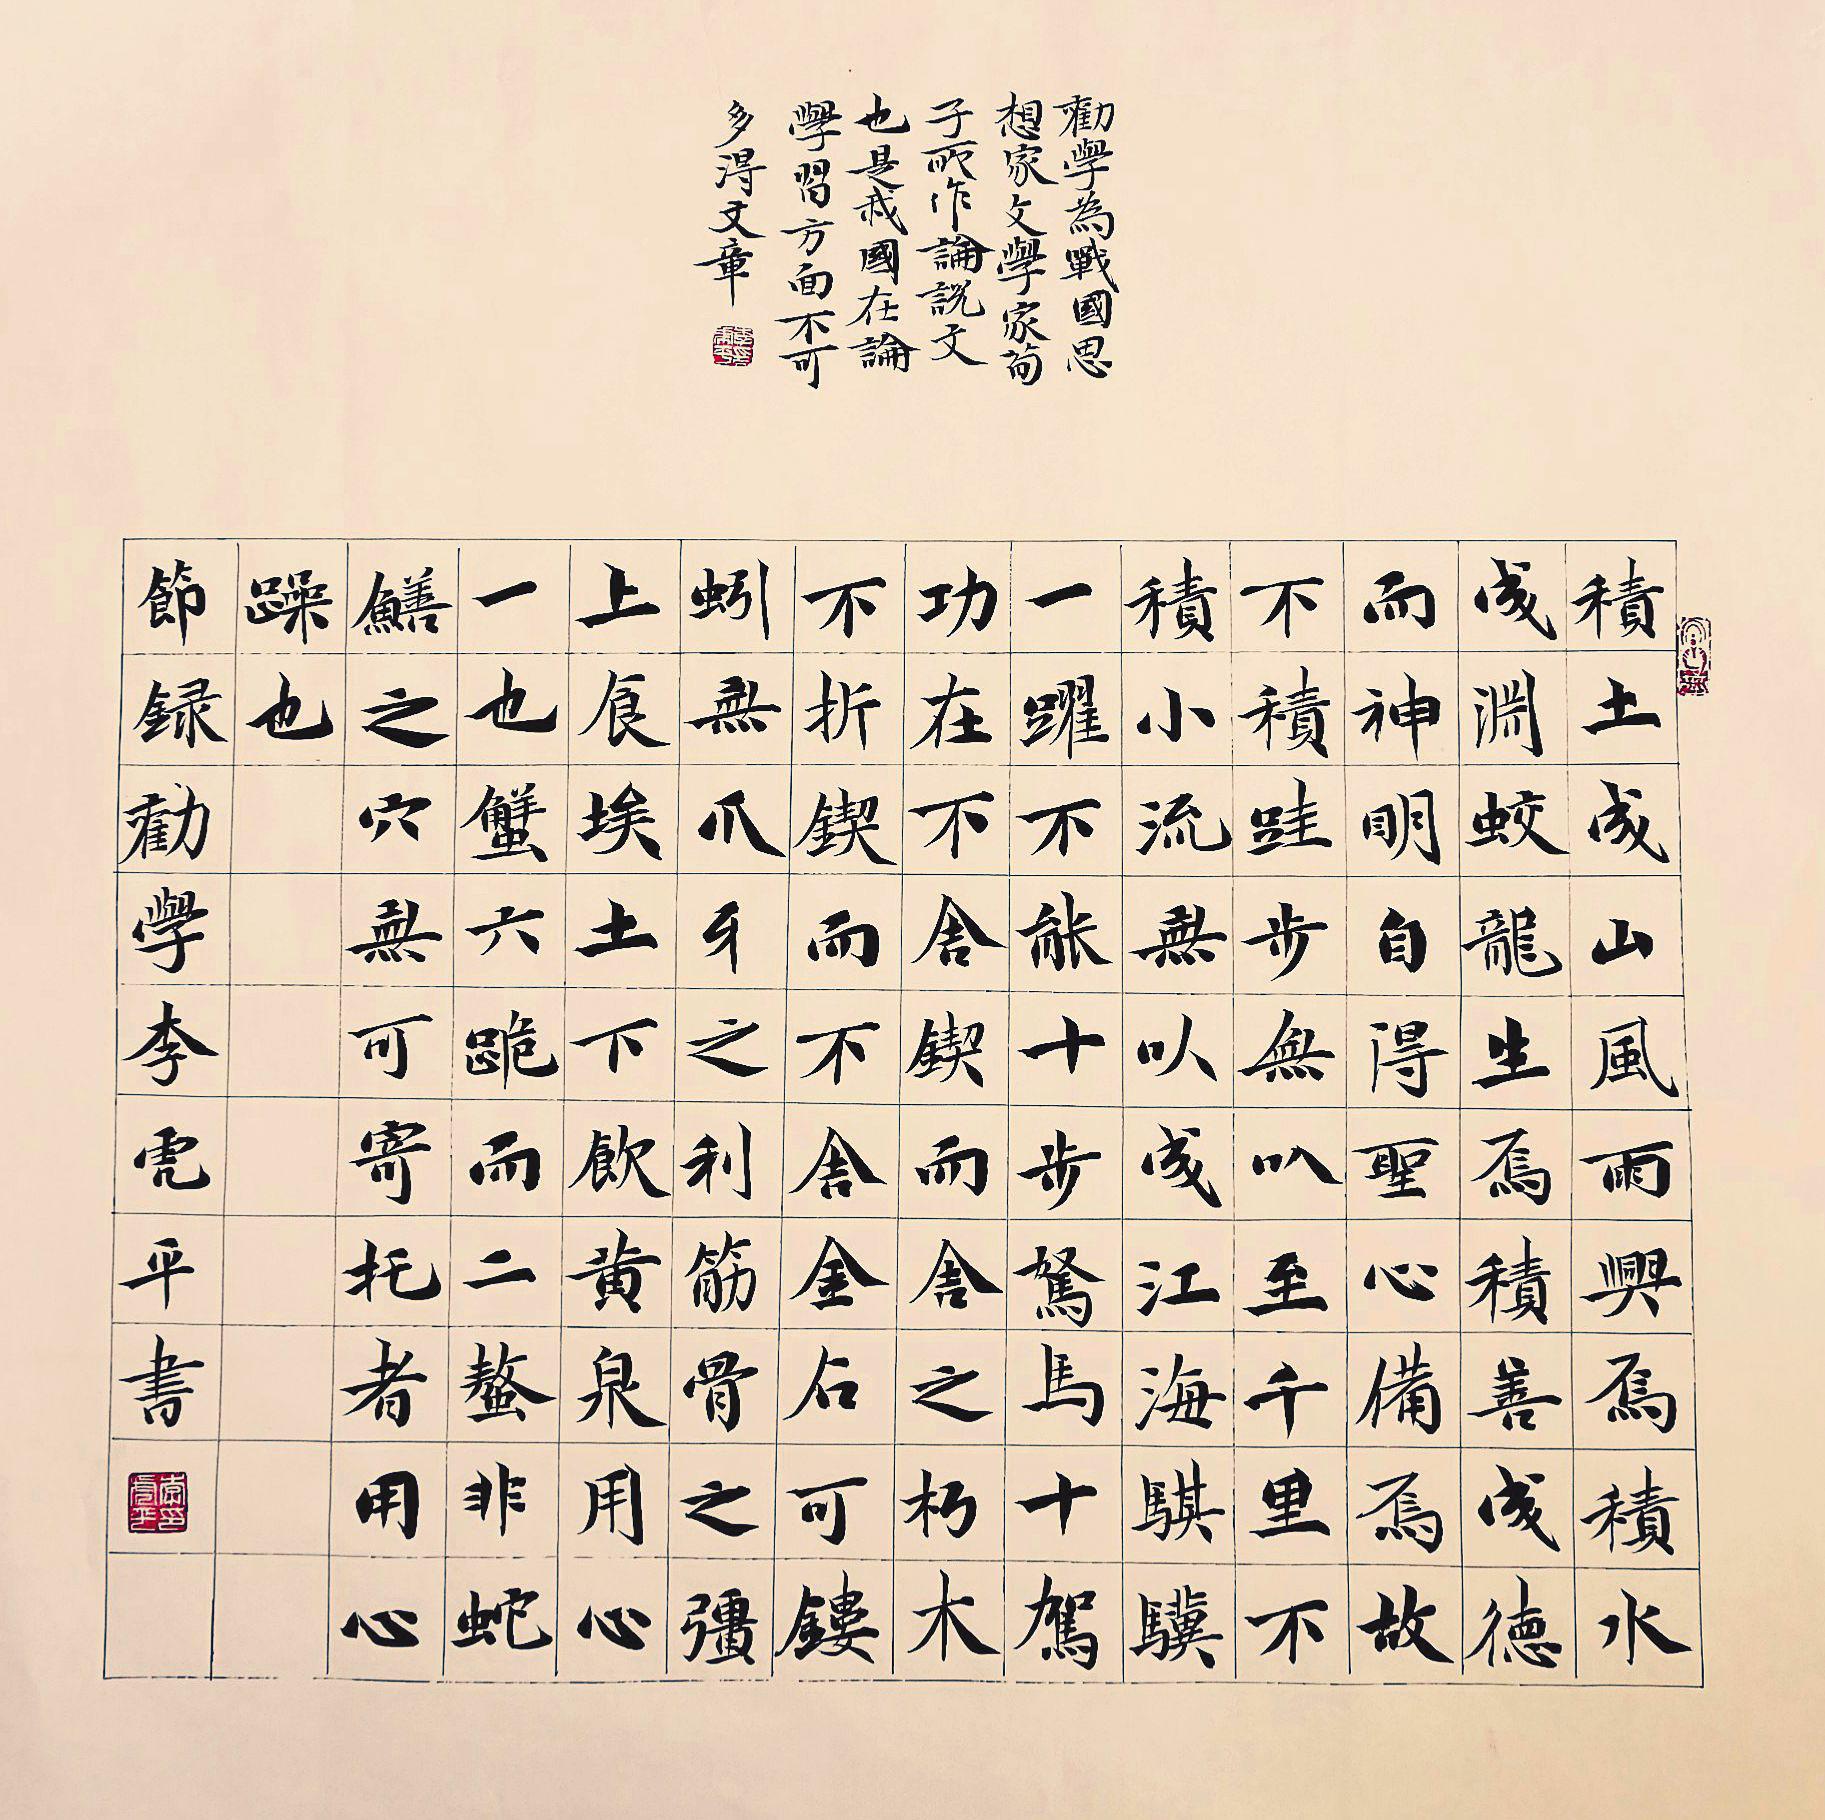 勸學為戰國思
想家文學家荀
子所作論說文
也是我國在論
學習方面不可
多得文章
積土成山風雨興焉積水
成淵蛟龍生焉積善成德
而神明自得聖心備焉故
不積跬步無以至千里不
積小流無以成江海騏驥
一躍不能十步駑馬十駕
功在不舍鍥而舍之朽木
不折鍥而不舍金石可鏤
蚓無爪牙之利筋骨之彊
上食埃土下飲黃泉用心
一也蟹六跪而二螯非蛇
鱔之穴無可寄托者用心
躁也
節録勸學李虎平書